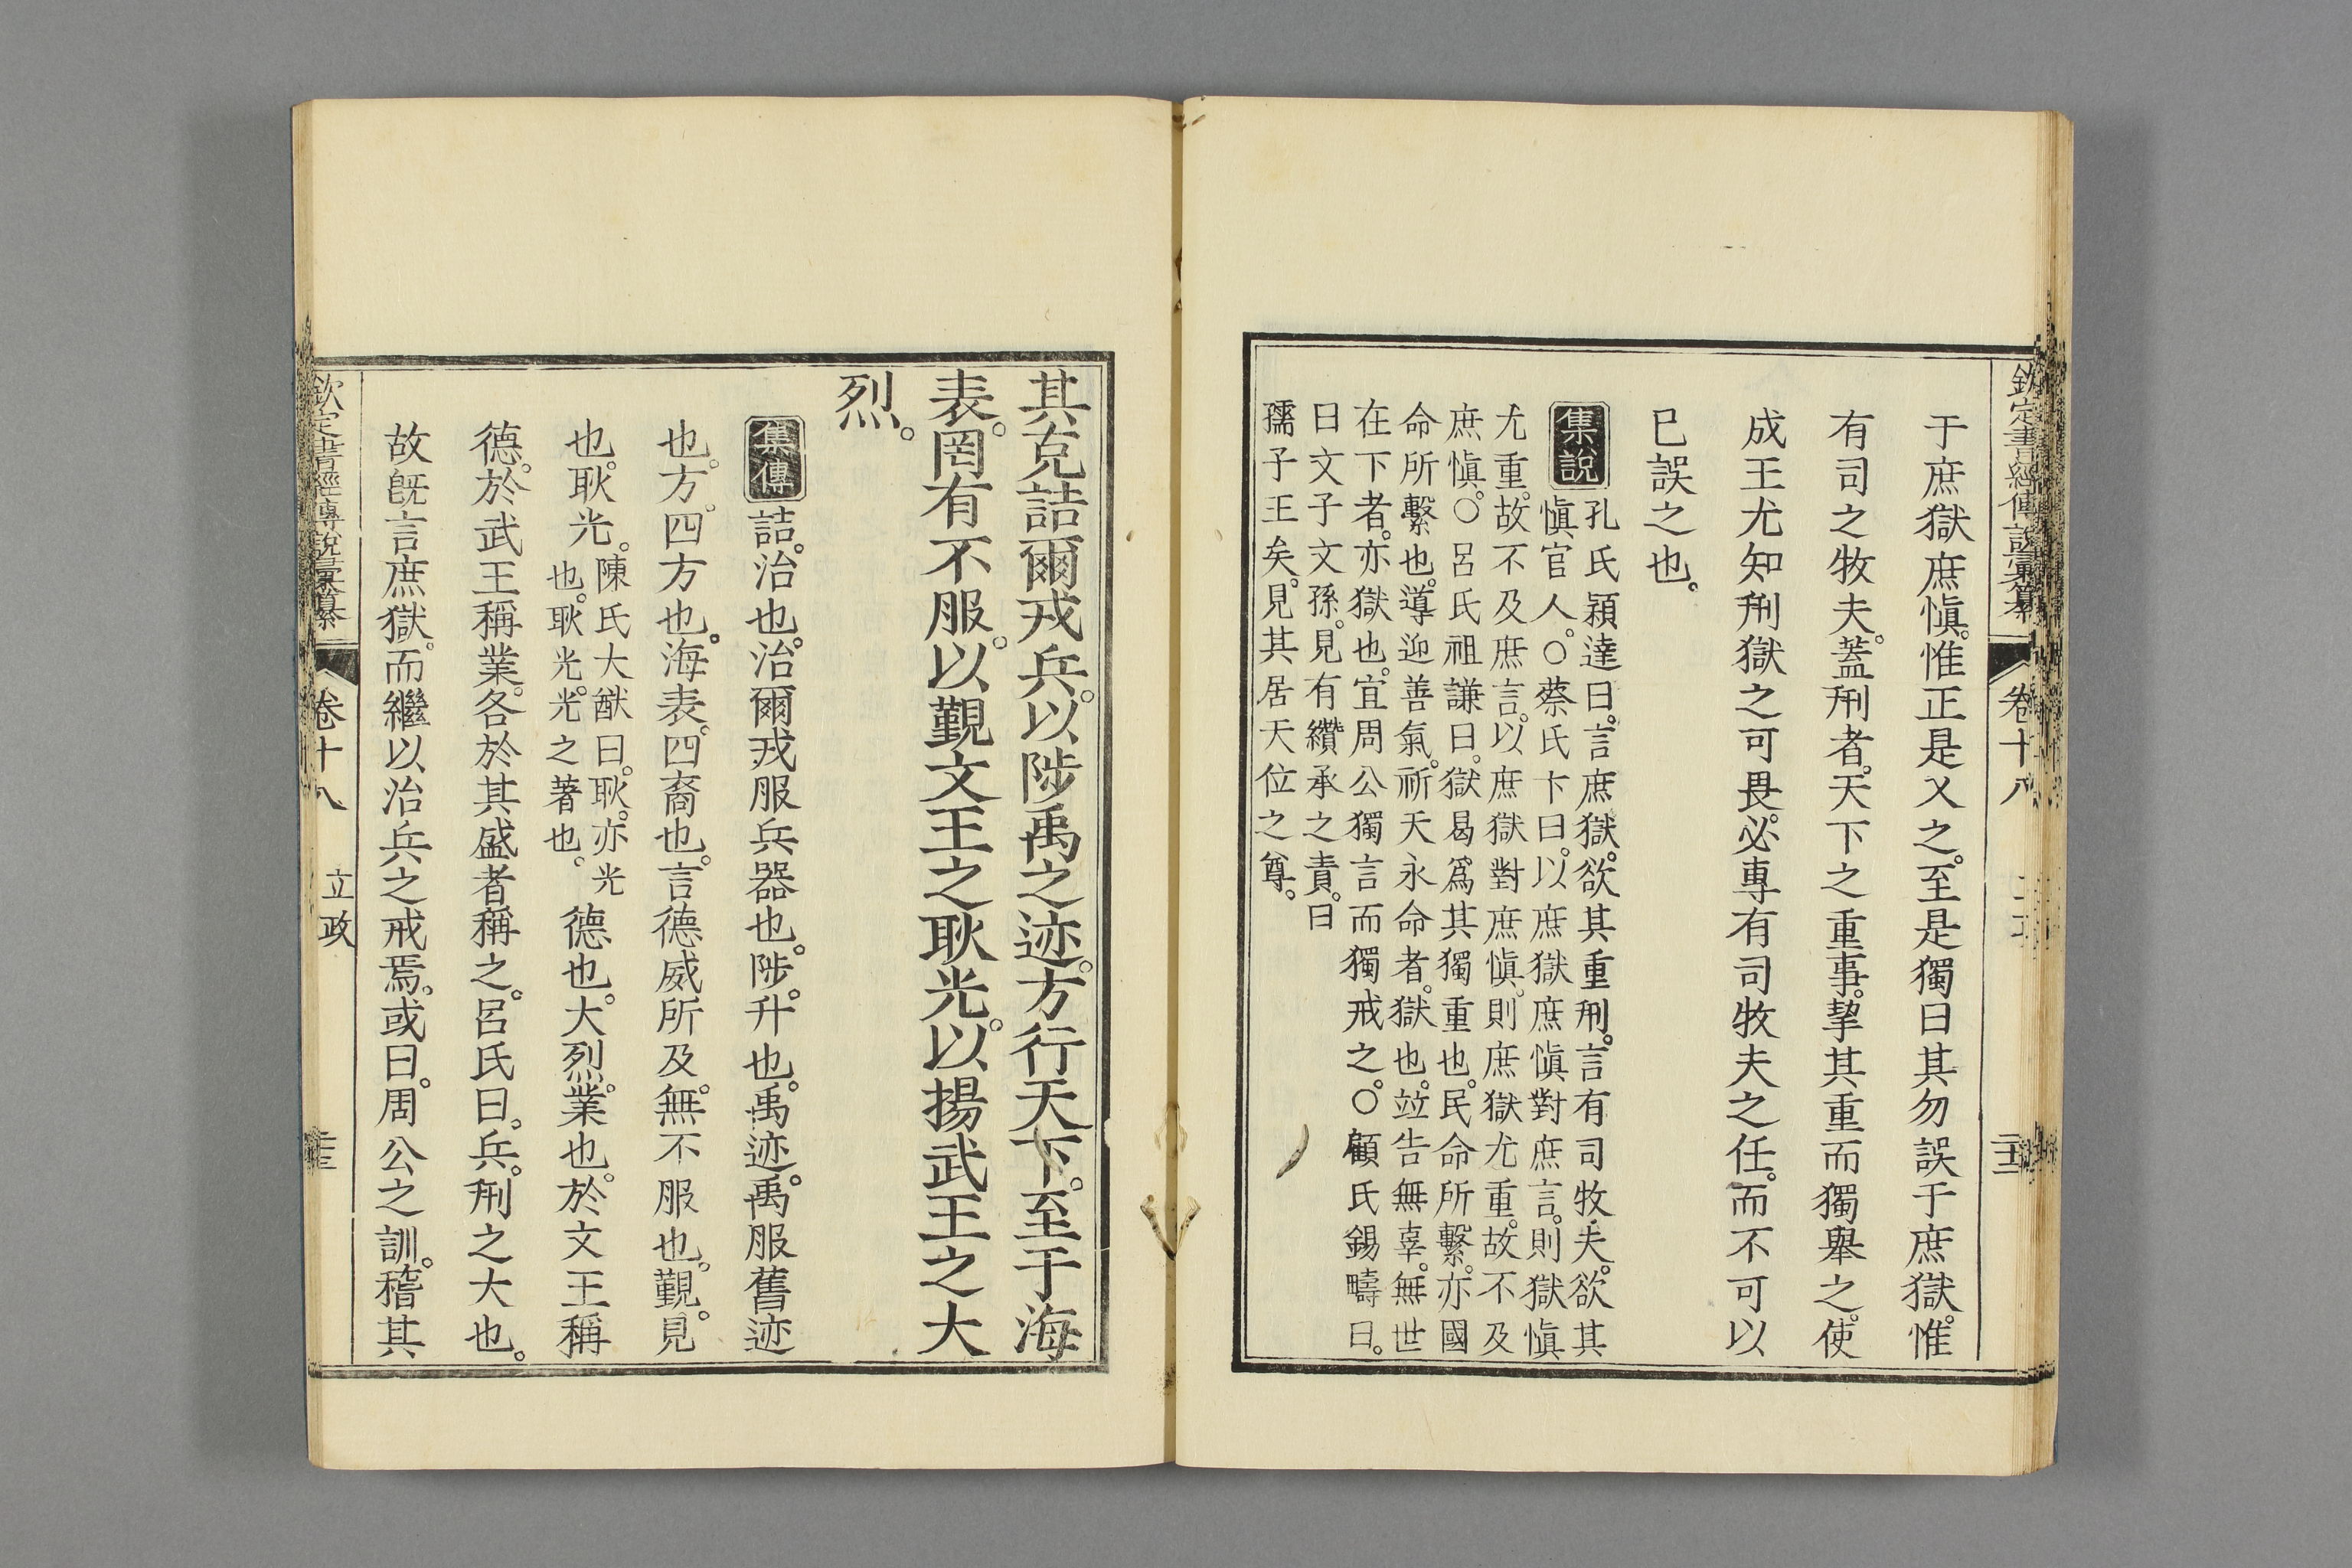 欽定書經傳說彙纂 卷十八
于庶獄庶愼。惟正是乂之。至是獨曰其勿誤于庶獄。惟
有司之牧夫。蓋刑者。天下之重事。挈其重而獨舉之。使
成王尤知刑獄之可畏。必專有司牧夫之任。而不可以
已誤之也。
集說 孔氏穎達曰。言庶獄。欲其重刑。言有司牧夫。欲其
愼官人。○蔡氏卞曰。以庶獄庶愼對庶言。則獄愼
尤重。故不及庶言。以庶獄對庶愼。則庶獄尤重。故不及
庶愼。○呂氏祖謙曰。獄曷爲其獨重也。民命所繫。亦國
命所繫也。導迎善氣。祈天永命者。獄也。竝告無辜。無世
在下者。亦獄也。宜周公獨言而獨戒之。○顧氏錫疇曰。
曰文子文孫。見有纘承之責。曰
孺子王矣。見其居天位之尊。
其克詰爾戎兵。以陟禹之迹。方行天下。至于海
表。罔有不服。以覲文王之耿光。以揚武王之大
烈。
集傳 詰。治也。治爾戎服兵器也。陟。升也。禹迹。禹服舊迹
也。方。四方也。海表。四裔也。言德威所及。無不服也。覲。見
也。耿光。陳氏大猷曰。耿。亦光
也。耿光。光之著也。德也。大烈。業也。於文王稱
德。於武王稱業。各於其盛者稱之。呂氏曰。兵。刑之大也。
故旣言庶獄。而繼以治兵之戒焉。或曰。周公之訓。稽其
欽定書經傳說彙纂 卷十八 立政